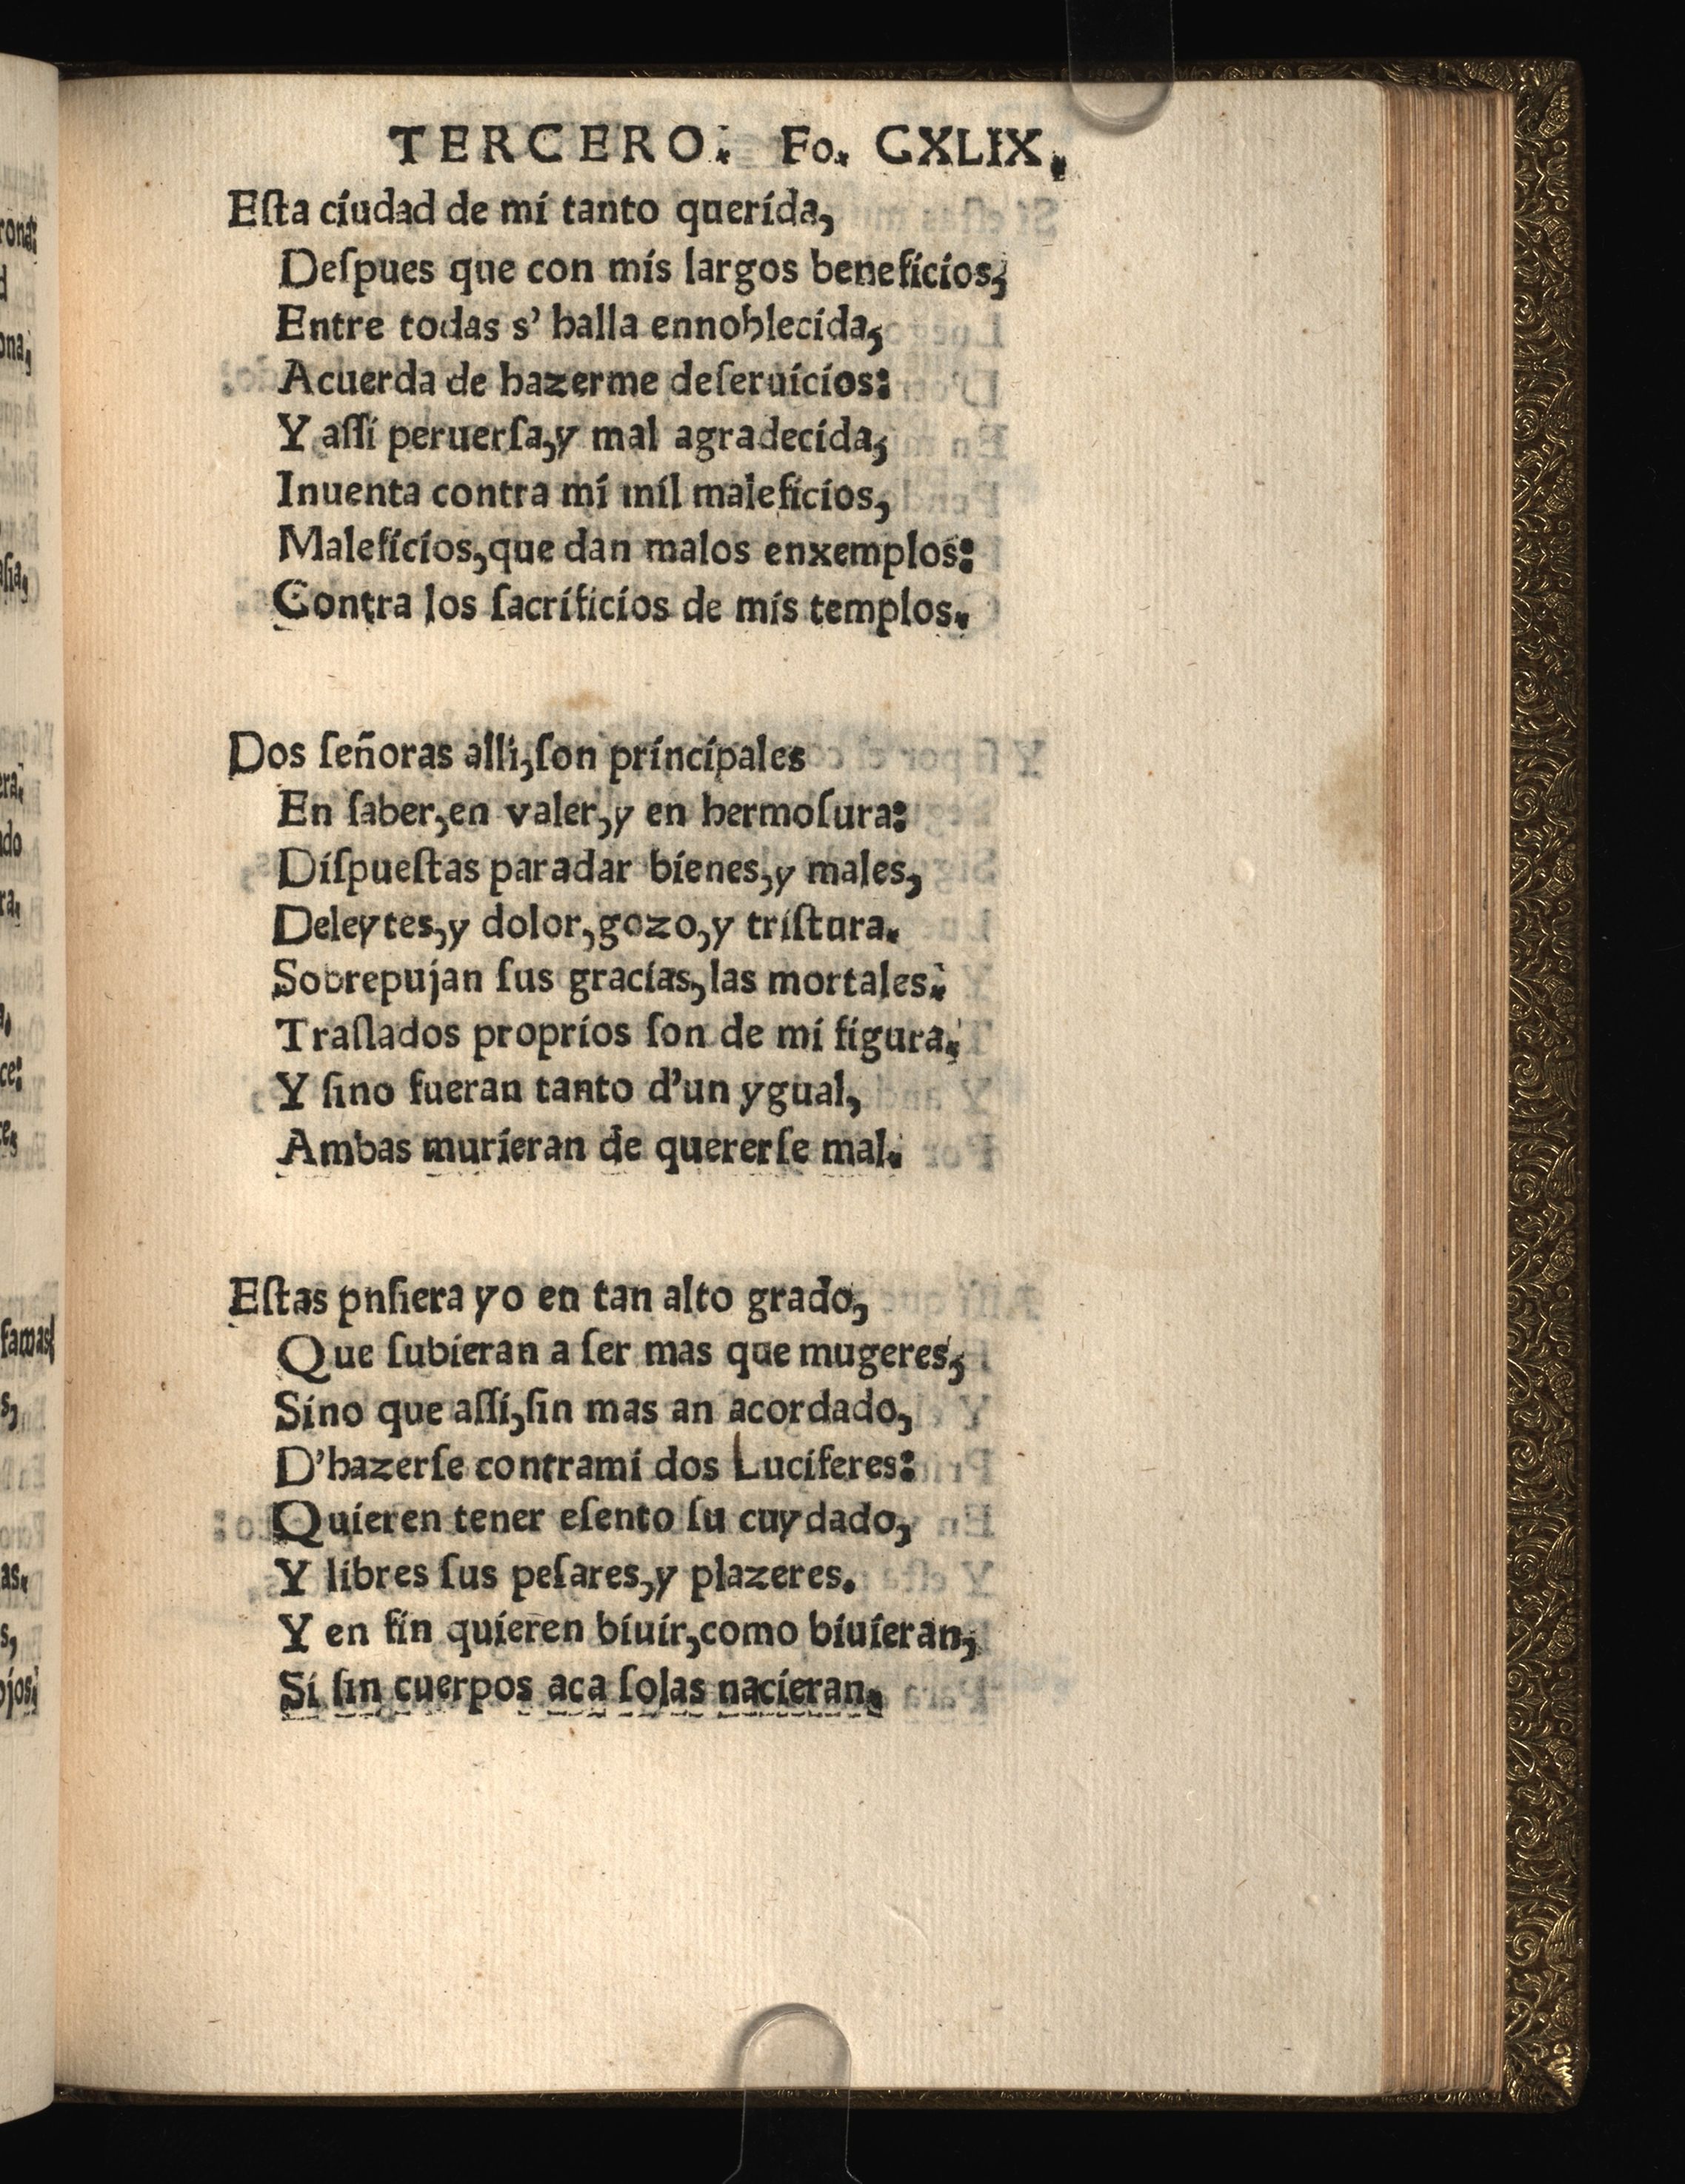 TERCERO. Fo. CXLIX.
Eſta ciudad de mi tanto querida,
Deſpues que con mis largos beneficios,
Entre todas s' halla ennoblecida,
Acuerda de hazerme deſeruicios:
Y aſſi peruerſa, y mal agradecida,
Inuenta contra mi mil maleficios,
Maleficios, que dan malos enxemplos:
Contra los ſacrificios de mis templos.
Dos ſeñoras alli, ſon principales
En ſaber, en valer, y en hermoſura:
Diſpueſtas paradar bienes, y males,
Deleytes, y dolor, gozo, y triſtura.
Sobrepujan ſus gracias, las mortales:
Traſlados proprios ſon de mi figura.
Y ſino fueran tanto d'un ygual,
Ambas murieran de quererſe mal.
Eſtas pnſiera yo en tan alto grado,
Que ſubieran a ſer mas que mugeres,
Sino que aſſi, ſin mas an acordado,
D'hazerſe contrami dos Luciferes:
Quieren tener eſento ſu cuydado,
Y libres ſus peſares, y plazeres.
Y en fin quieren biuir, como biuieran,
Si ſin cuerpos aca ſolas nacieran.